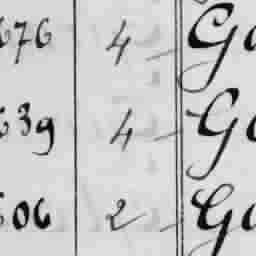 676 4 - Ga
639 4 - Ga
606 2 - Ga